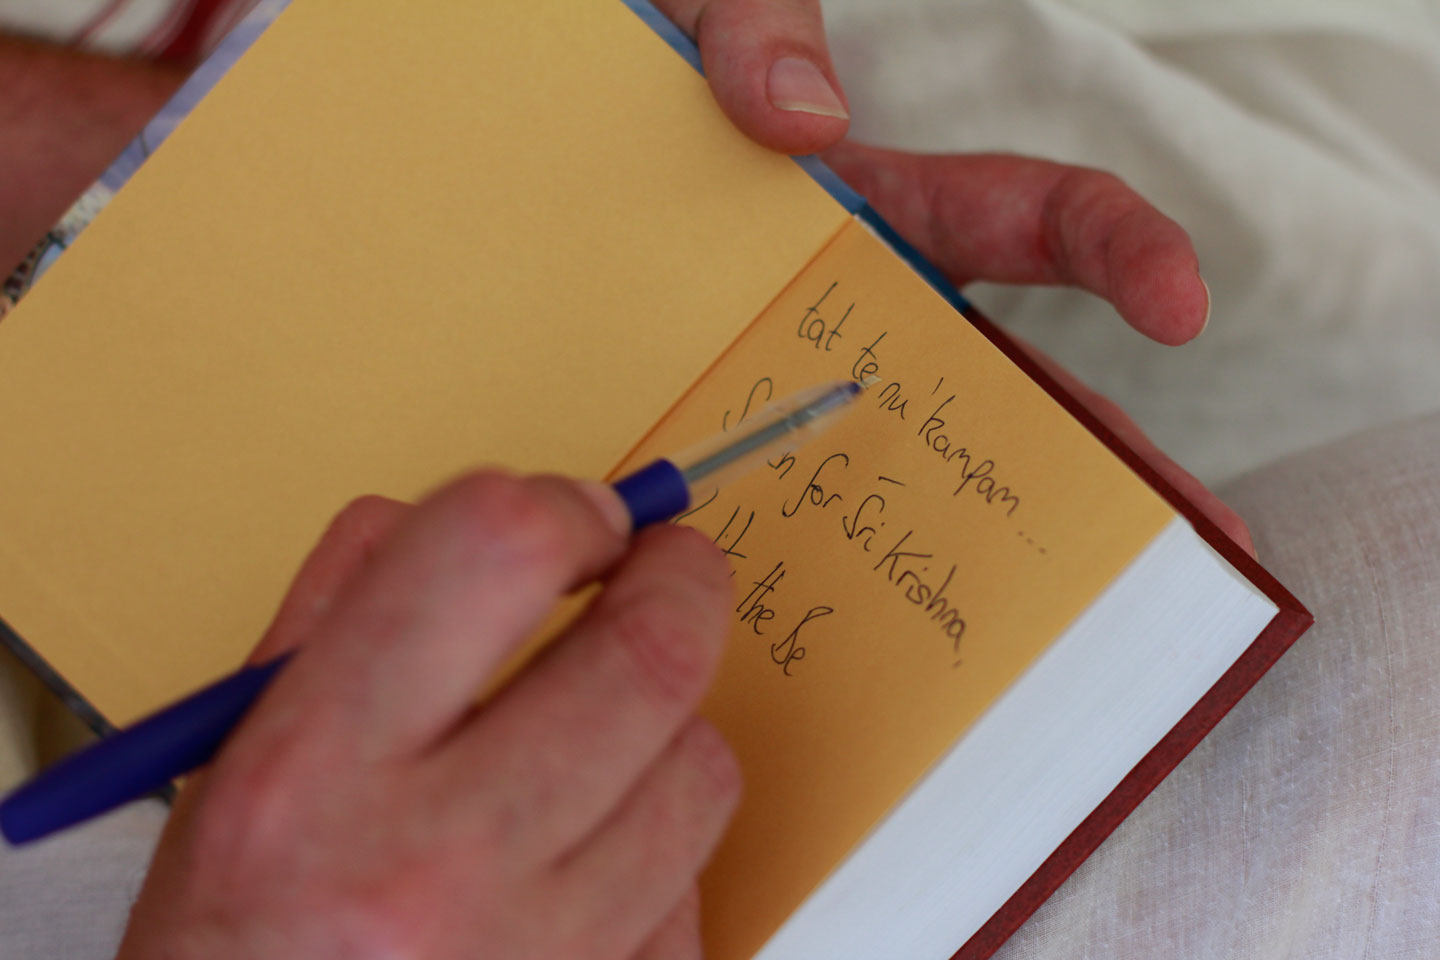 tat te nu'kampam...
for Śrī Krishna,
the Be